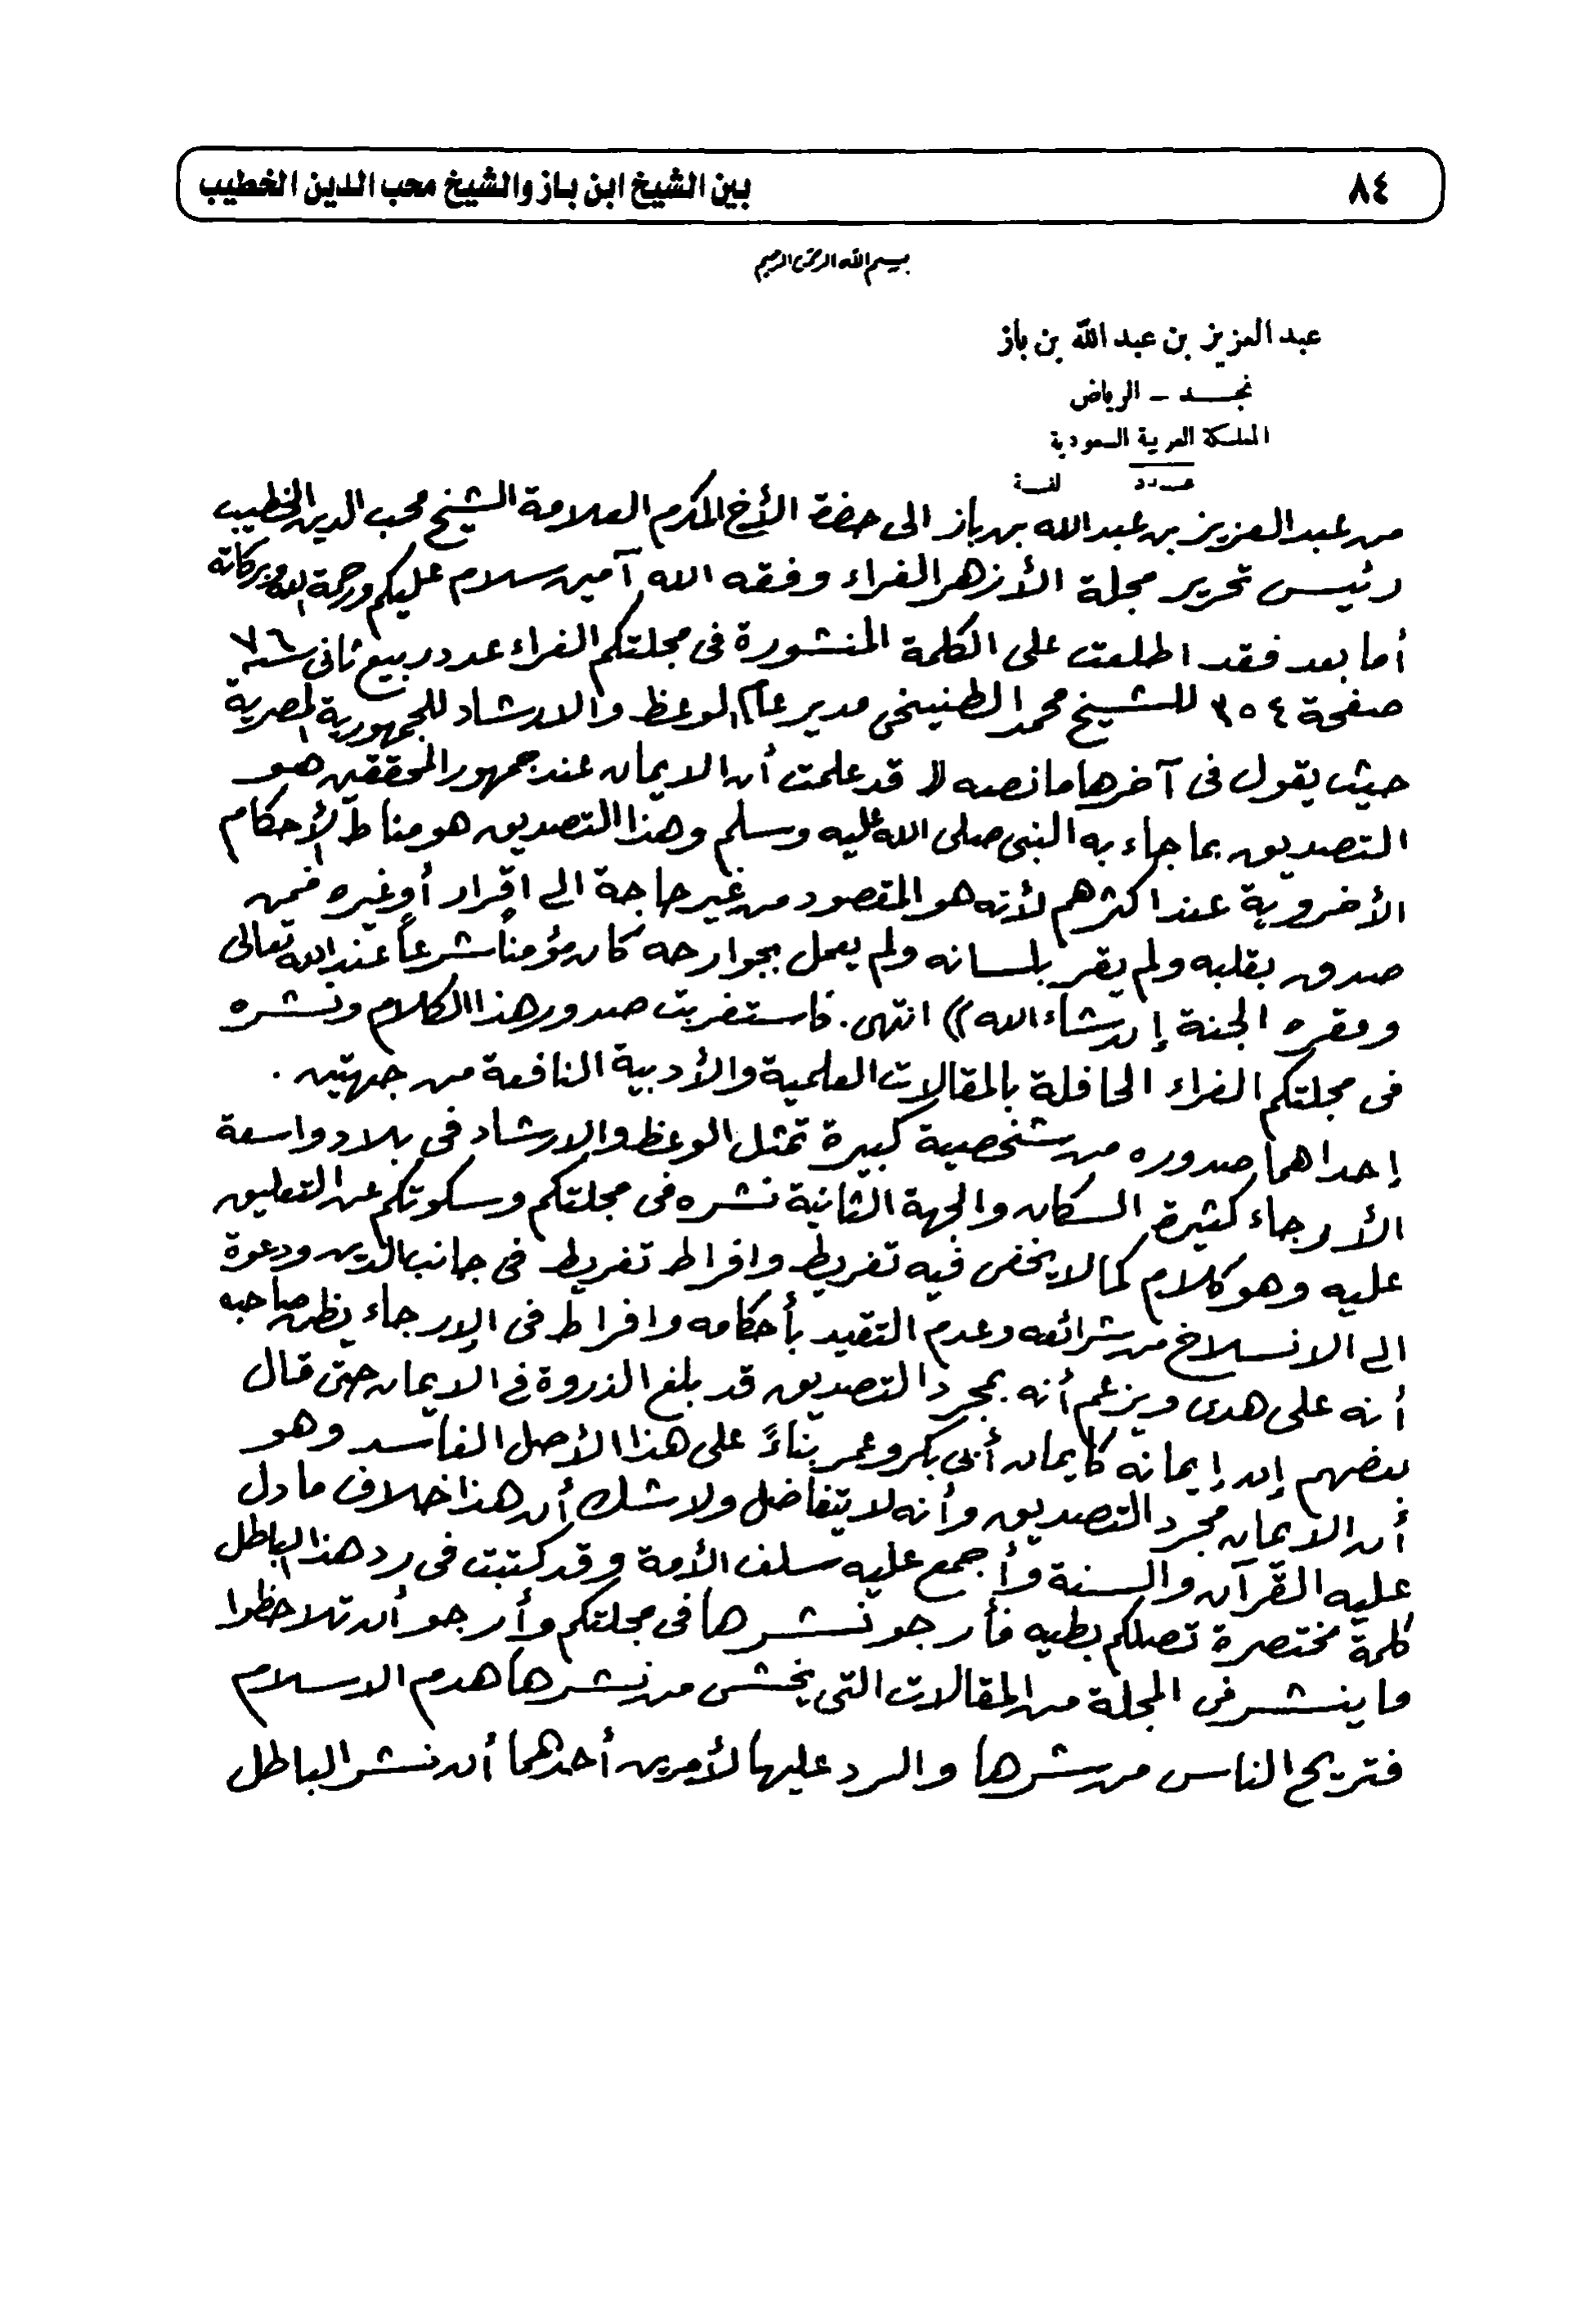 ٨٤
بين الشيخ ابن باز والشيخ محب الدين الخطيب
بسم الله الرحمن الرحيم
عبد العزيز بن عبد الله بن باز
نجد - الرياض
المملكة العربية السعودية
عدد لفـة
من عبد العزيز بن عبد الله بن باز الى حضرة الأخ المكرم العلامة الشيخ محب الدين الخطيب
رئيس تحرير مجلة الأزهر الغراء وفقه الله آمين سلام عليكم ورحمة الله وبركاته
أما بعد فقد اطلعت على الكلمة المنشورة فى مجلتكم الغراء عدد ربيع ثانى سنة ٧٦
صفحة ٣٥٤ للشيخ محمد الطنيخى مدير عام الوعظ والارشاد للجمهورية المصرية
حيث يقول فى آخرها ما نصه (( قد علمت أن الايمان عند جمهور المحققين هو
التصديق بما جاء به النبى صلى الله عليه وسلم وهذا التصديق هو مناط الأحكام
الأخروية عند اكثرهم لأنه هو المقصود من غير حاجة الى اقرار أو غيره فمن
صدق بقلبه ولم يقر بلسانه ولم يعمل بجوارحه كان مؤمناً شرعاً عند الله تعالى
ومقره الجنة إن شاء الله )) انتهى . فاستغربت صدور هذا الكلام ونشره
فى مجلتكم الغراء الحافلة بالمقالات العلمية والأدبية النافعة من جهتين .
إحداهما صدوره من شخصية كبيرة تمثل الوعظ والارشاد فى بلاد واسعة
الأرجاء كثيرة السكان والجهة الثانية نشره فى مجلتكم وسكوتكم عن التعليق
عليه وهو كلام كما لا يخفى فيه تفريط وافراط تفريط فى جانب الدين ودعوة
الى الانسلاخ من شرائعه وعدم التقيد بأحكامه وافراط فى الإرجاء يظن صاحبه
أنه على هدى ويزعم أنه بمجرد التصديق قد بلغ الذروة فى الايمان حتى قال
بعضهم إن إيمانه كإيمان أبى بكر وعمر بناءً على هذا الأصل الفاسد وهو
أن الايمان مجرد التصديق وأنه لا يتفاضل ولا شك أن هذا خلاف ما دل
عليه القرآن والسنة وأجمع عليه سلف الأمة وقد كتبت فى رد هذا الباطل
كلمة مختصرة تصلكم بطيه فأرجو نشرها فى مجلتكم وأرجو أن تلاحظوا
ما ينشر فى المجلة من المقالات التى يخشى من نشرها هدم الاسلام
فتريح الناس من شرها والرد عليها لأمرين أحدهما أن نشر الباطل